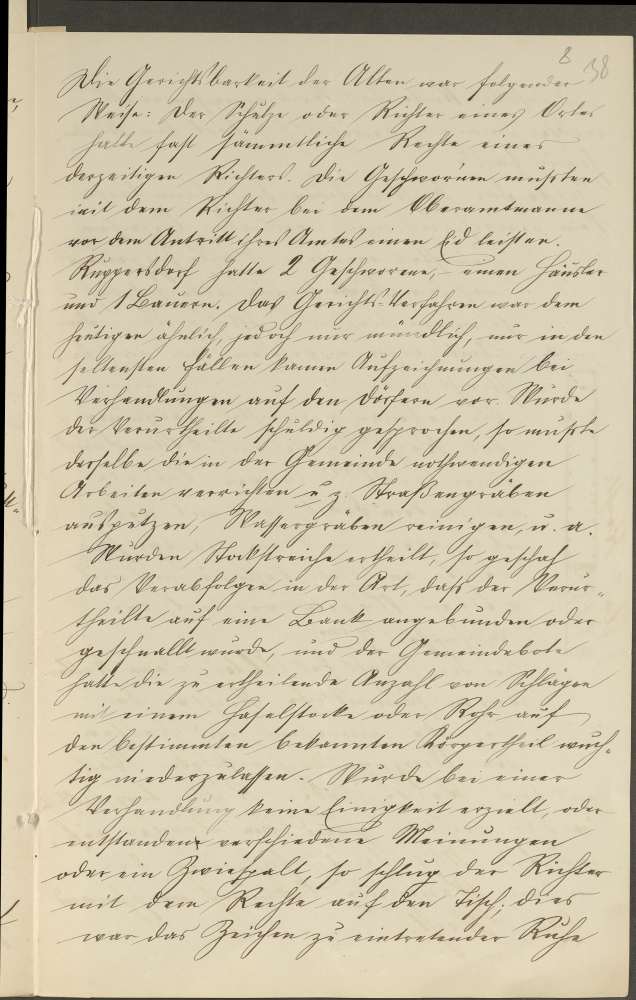 8 38
Die Gerichtsbarkeit der Alten war folgender
Weise: Der Schulze oder Richter eines Ortes
hatte fast sämmtliche Rechte eines
derzeitigen Richters. Die Geschwornen mußten
mit dem Richter bei dem Oberamtmanne
vor dem Antritt ihres Amtes einen Eid leisten.
Ruppersdorf hatte 2 Geschworene, einen Häusler
und 1 Bauern. Das Gerichts-Verfahren war dem
heutigen ähnlich, jedoch nur mündlich, nur in den
seltensten Fällen kamen Aufzeichnungen bei
Verhandlungen auf den Dörfern vor. Wurde
der Verurtheilte schuldig gesprochen, so mußte
derselbe die in der Gemeinde nothwendigen
Arbeiten verrichten u. z. Straßengräben
ausputzen, Wassergräben reinigen, u. a.
Wurden Stockstreiche ertheilt, so geschah
das Verabfolgen in der Art, daß der Verur-
theilte auf eine Bank angebunden oder
geschnallt wurde, und der Gemeindebote
hatte die zu ertheilende Anzahl von Schlägen
mit einem Haselstocke oder Rohr auf
den bestimmten bekannten Körpertheil wuch-
tig niederzulassen. Wurde bei einer
Verhandlung keine Einigkeit erzielt, oder
entstanden verschiedene Meinungen
oder ein Zwiespalt, so schlug der Richter
mit dem Rechte auf den Tisch; dies
war das Zeichen zu eintretender Ruhe